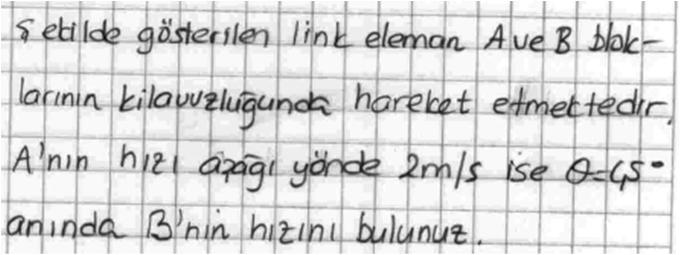 Şekilde gösterilen link eleman A ve B blok-
larının kılavuzluğunda hareket etmektedir.
A'nın hızı aşağı yönde 2m/s ise θ=45°
anında B'nin hızını bulunuz.